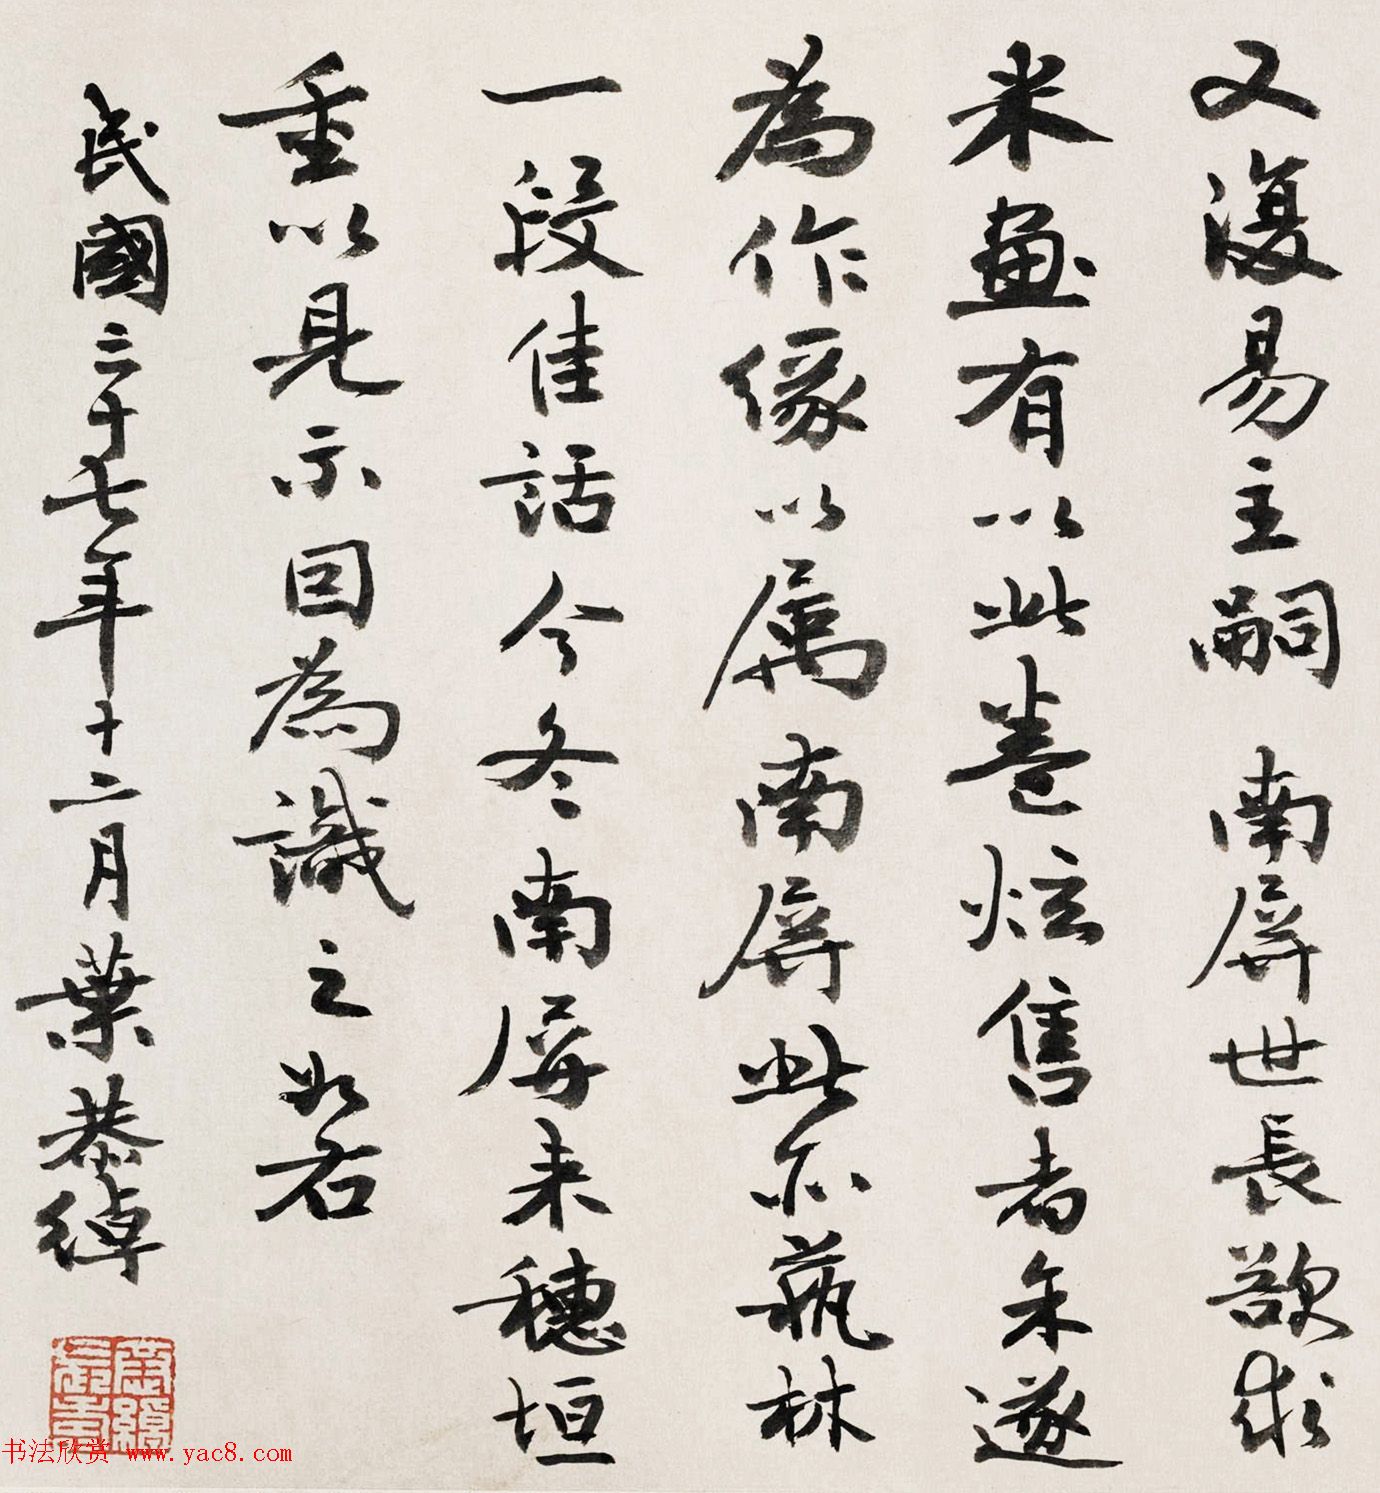 又復易主嗣南屏世長欲求
米畫有以此卷炫售者余遂
為作緣以属南屏此亦蓺林
一段佳話今冬南屏来穗垣
重以見示因為識之如右
民國三十七年十二月葉恭綽
书法欣赏 www.yac8.com